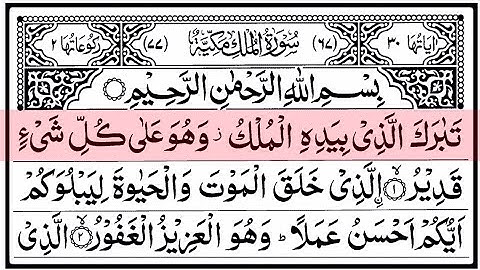 اٰیَاتُهَا ٣٠ (٦٧) سُوْرَةُ الْمُلْكِ مَكِّیَّةٌ (٧٧) رُكُوْعَاتُهَا ٢
بِسْمِ اللّٰهِ الرَّحْمٰنِ الرَّحِیْمِ
تَبٰرَكَ الَّذِیْ بِیَدِهِ الْمُلْكُ ز وَهُوَ عَلٰی كُلِّ شَیْءٍ
قَدِیْرُ ۙ﴿١﴾ ِ۟الَّذِیْ خَلَقَ الْمَوْتَ وَالْحَیٰوةَ لِیَبْلُوَكُمْ
اَیُّكُمْ اَحْسَنُ عَمَلًا ؕ وَهُوَ الْعَزِیْزُ الْغَفُوْرُ ۙ﴿٢﴾ الَّذِیْ